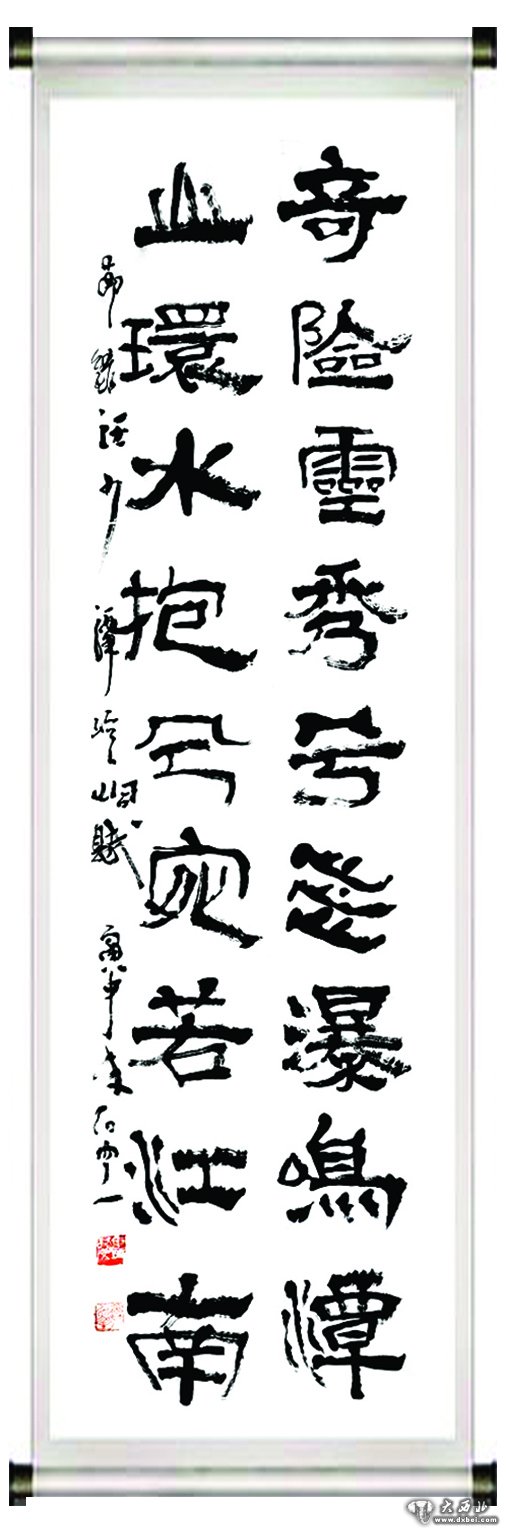 奇險靈秀兮飛瀑鳴潭
山環水抱兮宛若江南
節錄 崆峒賦
大西北
www.dxbei.com